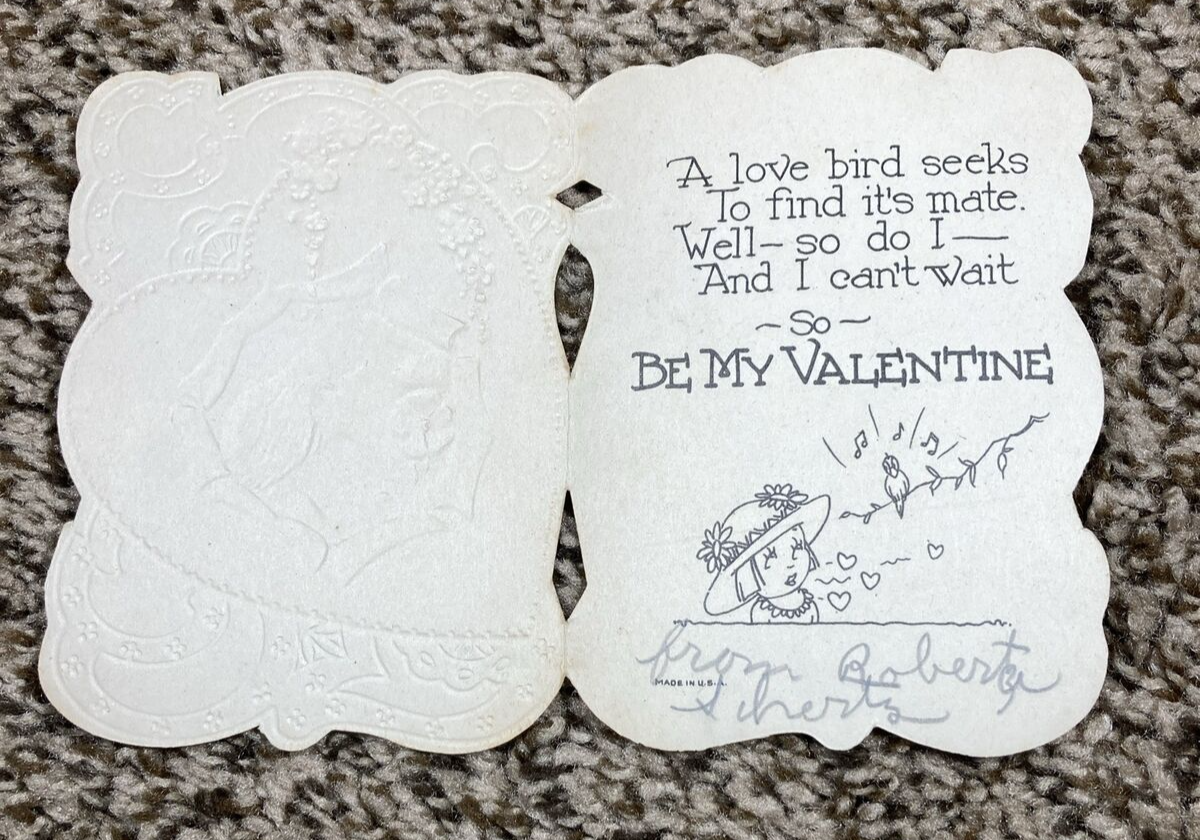 A love bird seeks
To find it's mate.
Well— so do I—
And I can't wait
~ So ~
BE MY VALENTINE
from Roberta
MADE IN U.S.A.